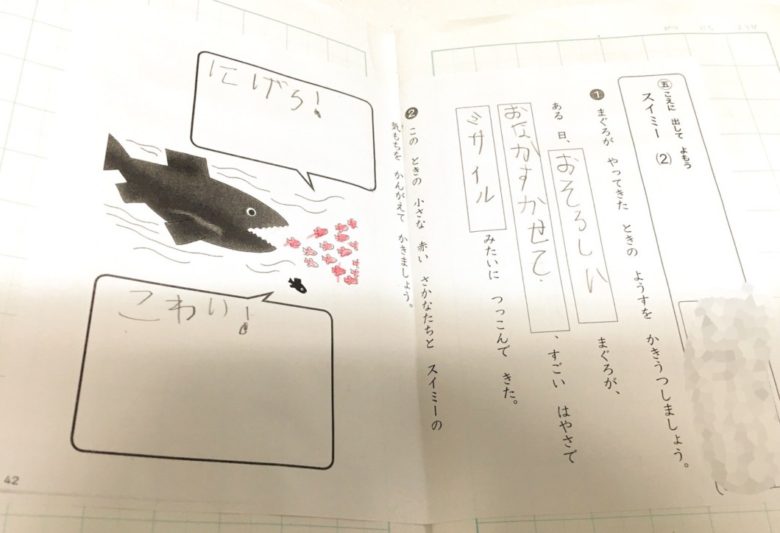 五 こえに 出して よもう
スイミー (2)
❶ まぐろが やってきた ときの ようすを かきうつしましょう。
ある 日、おそろしい まぐろが、
おなかすかせて、すごい はやさで
ミサイル みたいに つっこんで きた。
❷ この ときの 小さな 赤い さかなたちと スイミーの
気もちを かんがえて かきましょう。
にげろ!
こわい!
42